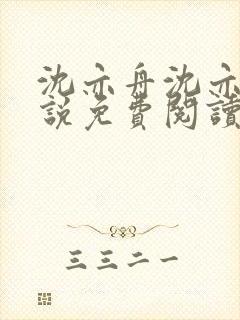 沈亦舟沈亦
說免費閱讀
三三二一